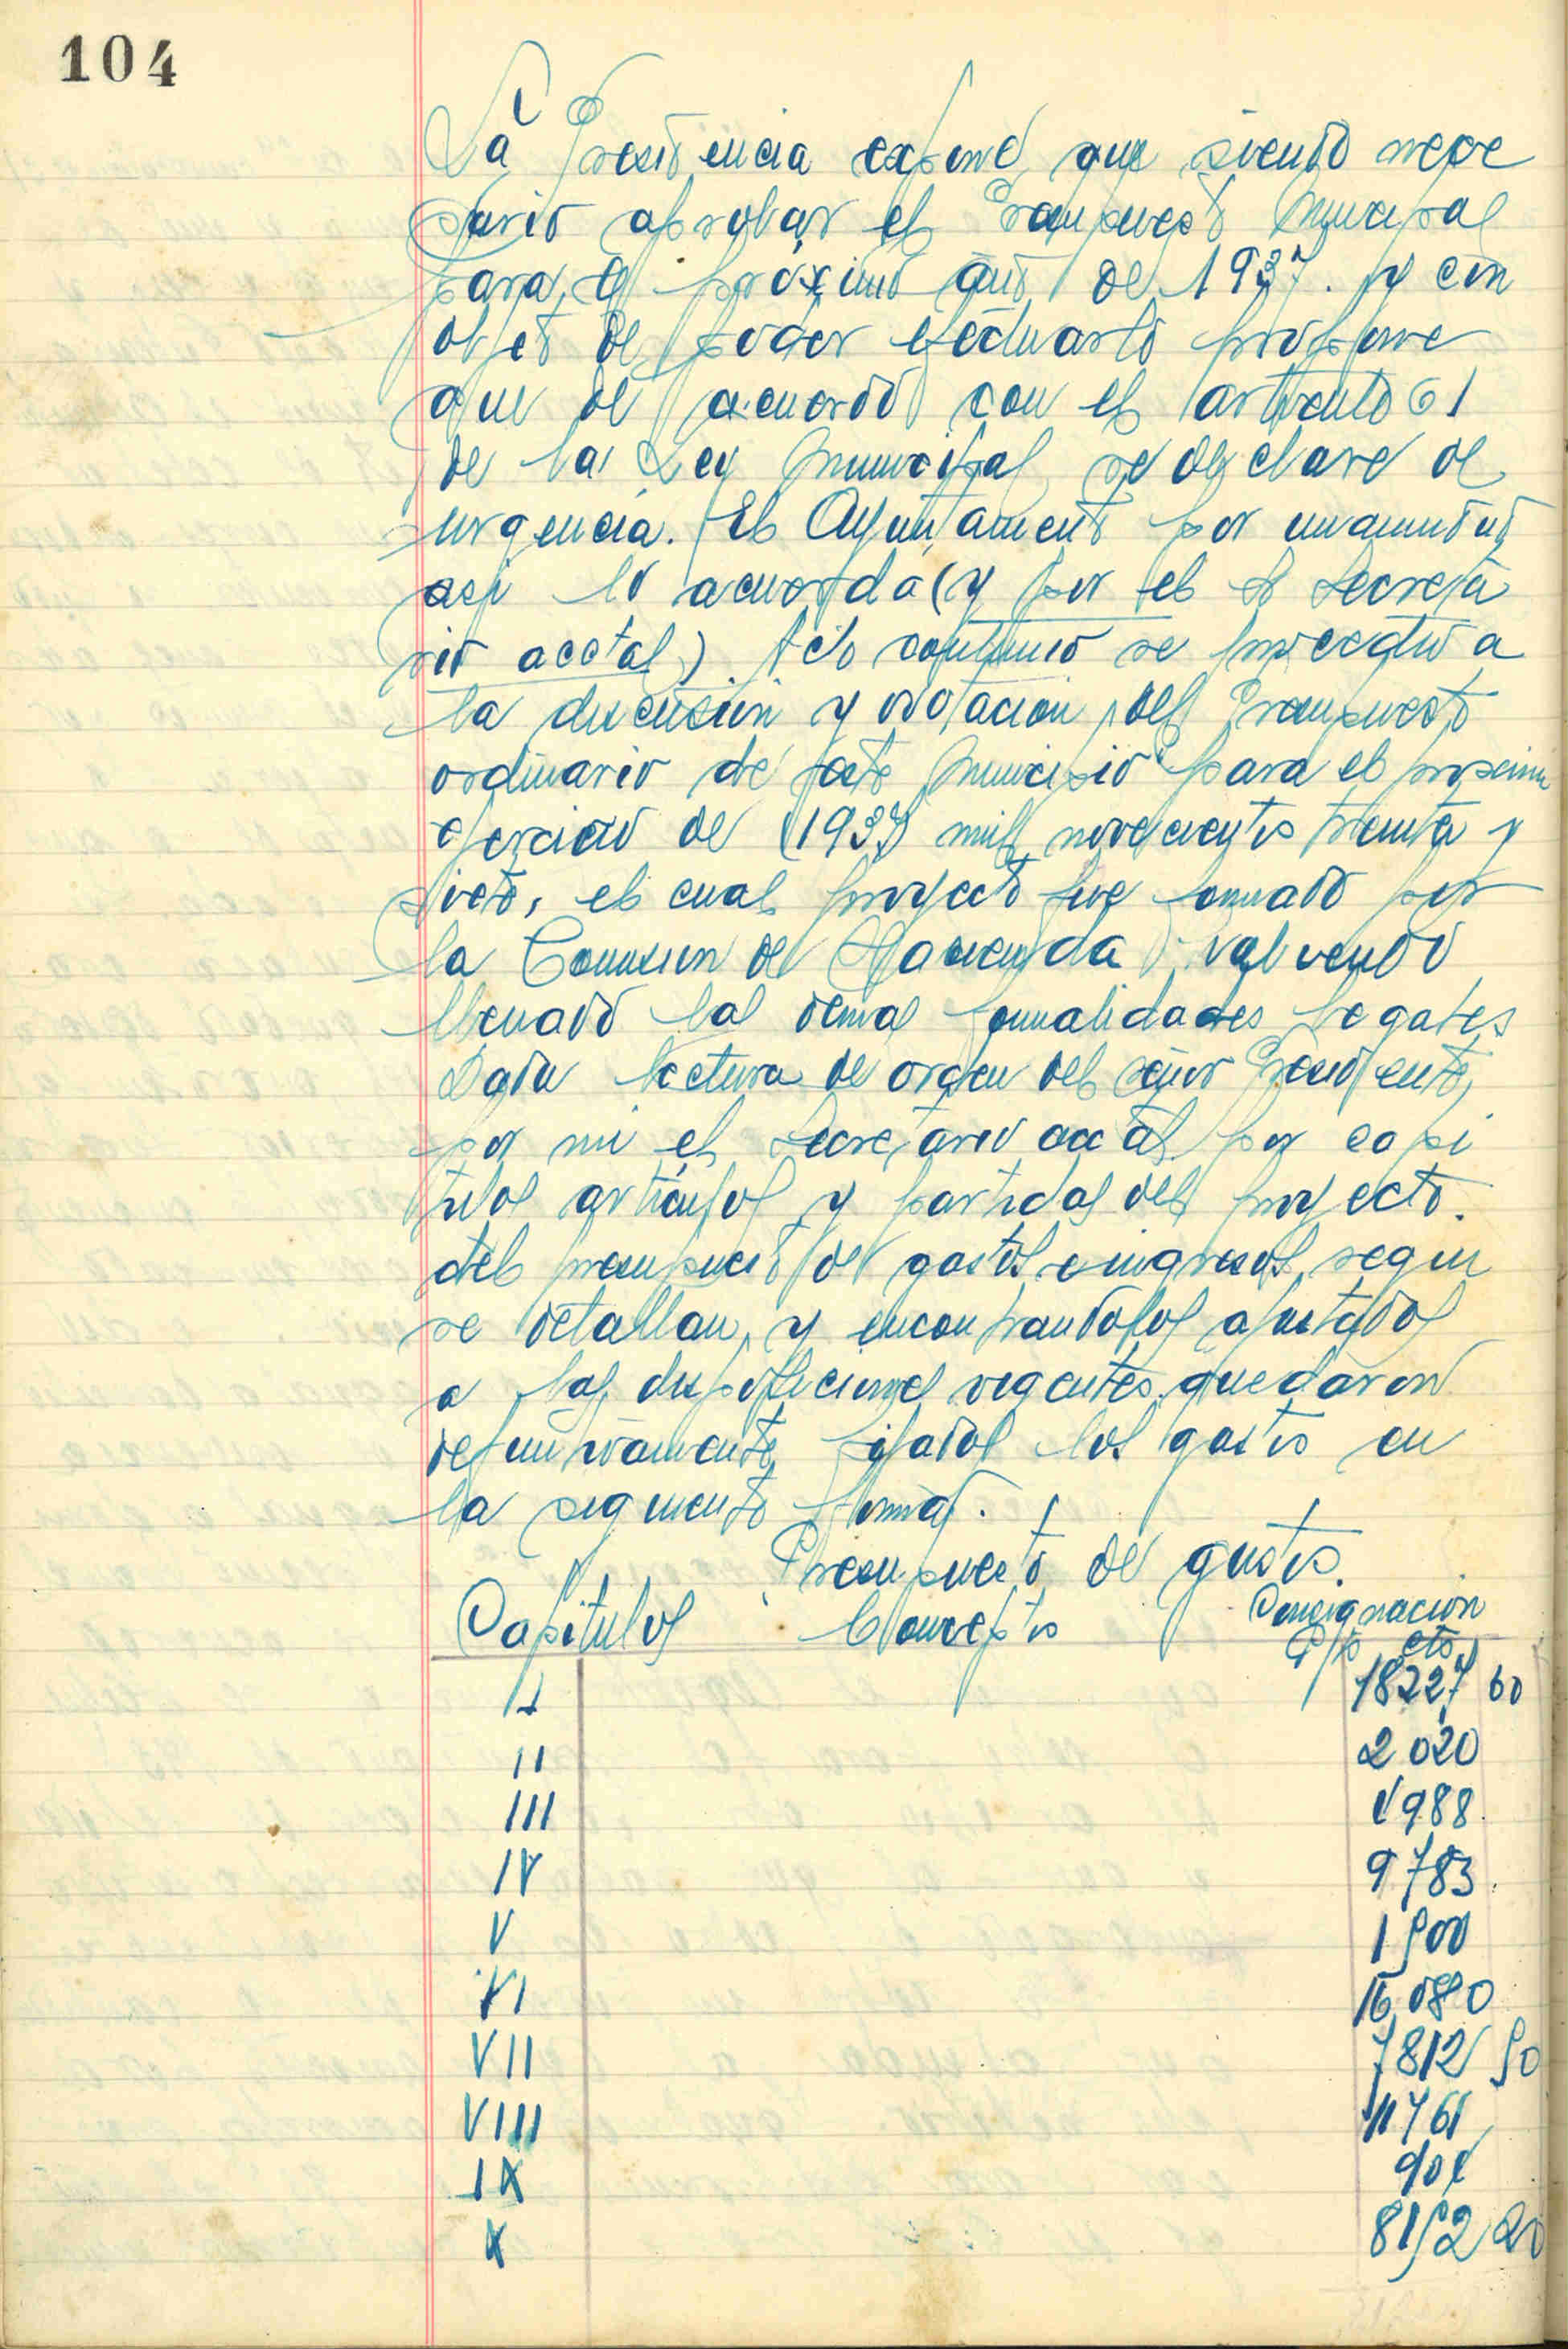 104
La Presidencia expone que siendo nece
sario aprobar el Presupuesto Municipal
para el próximo año de 1937. y con
objeto de poder efectuarlo propone
que de acuerdo con el articulo 61
de la Ley Municipal se declare de
urgencia. El Ayuntamiento por unanimidad
asi lo acuerda (y por el Secreta
rio acctal). Acto continuo se procedio a
la discusion y votacion del Presupuesto
ordinario de este Municipio para el proximo
ejercicio de (1937) mil novecientos treinta y
siete, el cual proyecto fue formado por
la Comision de Hacienda
llenado las demas formalidades legales
Dada lectura de orden del señor Presidente,
por mi el Secretario acctal por capi
tulos articulos y partidas del proyecto.
del presupuesto de gastos e ingresos, segun
se detallan, y encontrandolos ajustados
a las disposiciones vigentes, quedaron
definitivamente fijados los gastos en
la siguiente forma.
Presupuesto de gastos.
Capitulos Conceptos Consignacion
Pts cts
I 18227 60
II 2 020
III 1988.
IV 9783.
V 1500
VI 16,080
VII 7812 50
VIII 11761
IX 901
X 8152 20